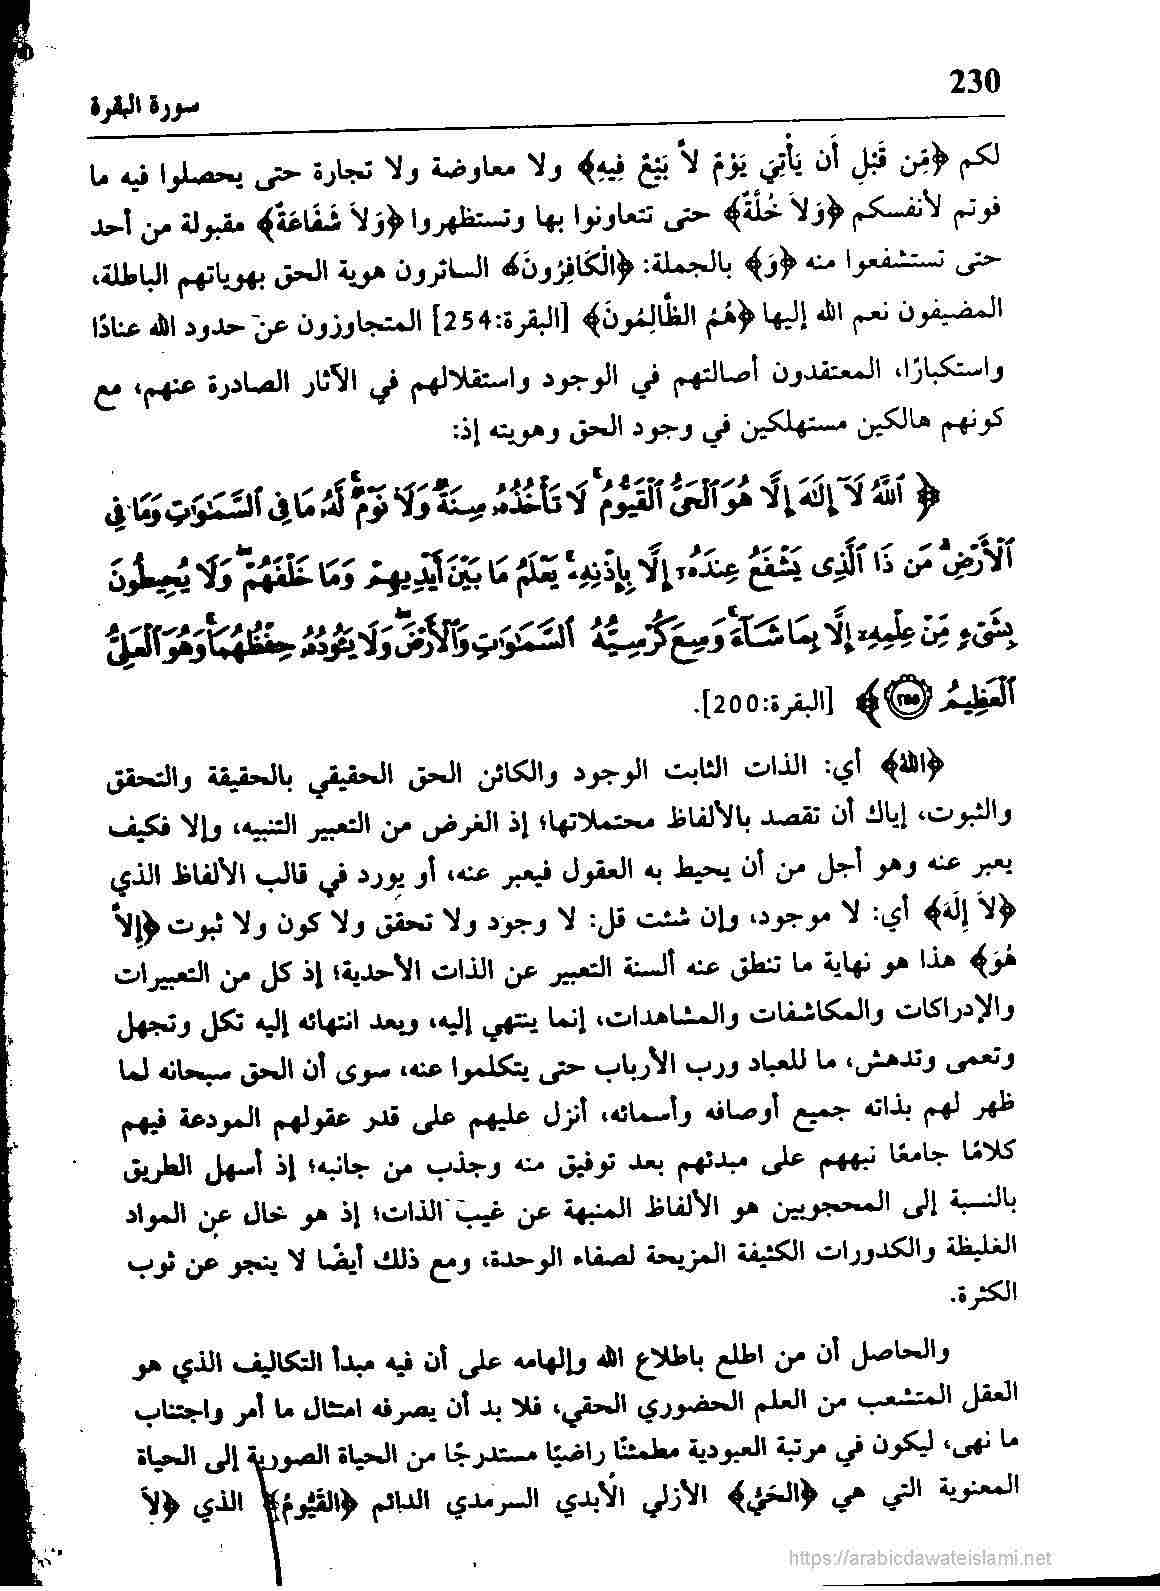 230
سورة البقرة
لكم ﴿مِّن قَبْلِ أَن يَأْتِيَ يَوْمٌ لاَّ بَيْعٌ فِيهِ﴾ ولا معاوضة ولا تجارة حتى يحصلوا فيه ما
فوتم لأنفسكم ﴿وَلاَ خُلَّةٌ﴾ حتى تتعاونوا بها وتستظهروا ﴿وَلاَ شَفَاعَةٌ﴾ مقبولة من أحد
حتى تستشفعوا منه ﴿وَ﴾ بالجملة: ﴿الْكَافِرُونَ﴾ الساترون هوية الحق بهوياتهم الباطلة،
المضيفون نعم الله إليها ﴿هُمُ الظَّالِمُونَ﴾ [البقرة:254] المتجاوزون عن حدود الله عنادًا
واستكبارًا، المعتقدون أصالتهم في الوجود واستقلالهم في الآثار الصادرة عنهم، مع
كونهم هالكين مستهلكين في وجود الحق وهويته إذ:
﴿ ٱللَّهُ لَآ إِلَٰهَ إِلَّا هُوَ ٱلْحَىُّ ٱلْقَيُّومُ ۚ لَا تَأْخُذُهُۥ سِنَةٌ وَلَا نَوْمٌ ۚ لَّهُۥ مَا فِى ٱلسَّمَٰوَٰتِ وَمَا فِى
ٱلْأَرْضِ ۗ مَن ذَا ٱلَّذِى يَشْفَعُ عِندَهُۥٓ إِلَّا بِإِذْنِهِۦ ۚ يَعْلَمُ مَا بَيْنَ أَيْدِيهِمْ وَمَا خَلْفَهُمْ ۖ وَلَا يُحِيطُونَ
بِشَىْءٍ مِّنْ عِلْمِهِۦٓ إِلَّا بِمَا شَآءَ ۚ وَسِعَ كُرْسِيُّهُ ٱلسَّمَٰوَٰتِ وَٱلْأَرْضَ ۖ وَلَا يَـُٔودُهُۥ حِفْظُهُمَا ۚ وَهُوَ ٱلْعَلِىُّ
ٱلْعَظِيمُ ٢٥٥﴾ [البقرة:200].
﴿اللهُ﴾ أي: الذات الثابت الوجود والكائن الحق الحقيقي بالحقيقة والتحقق
والثبوت، إياك أن تقصد بالألفاظ محتملاتها؛ إذ الغرض من التعبير التنبيه، وإلا فكيف
يعبر عنه وهو أجل من أن يحيط به العقول فيعبر عنه، أو يورد في قالب الألفاظ الذي
﴿لاَ إِلَهَ﴾ أي: لا موجود، وإن شئت قل: لا وجود ولا تحقق ولا كون ولا ثبوت ﴿إِلاَّ
هُوَ﴾ هذا هو نهاية ما تنطق عنه ألسنة التعبير عن الذات الأحدية؛ إذ كل من التعبيرات
والإدراكات والمكاشفات والمشاهدات، إنما ينتهي إليه، وبعد انتهائه إليه تكل وتجهل
وتعمى وتدهش، ما للعباد ورب الأرباب حتى يتكلموا عنه، سوى أن الحق سبحانه لما
ظهر لهم بذاته جميع أوصافه وأسمائه، أنزل عليهم على قدر عقولهم المودعة فيهم
كلامًا جامعًا نبههم على مبدئهم بعد توفيق منه وجذب من جانبه؛ إذ أسهل الطريق
بالنسبة إلى المحجوبين هو الألفاظ المنبهة عن غيب الذات؛ إذ هو خال عن المواد
الغليظة والكدورات الكثيفة المزيحة لصفاء الوحدة، ومع ذلك أيضًا لا ينجو عن ثوب
الكثرة.
والحاصل أن من اطلع باطلاع الله وإلهامه على أن فيه مبدأ التكاليف الذي هو
العقل المتشعب من العلم الحضوري الحقي، فلا بد أن يصرفه امتثال ما أمر واجتناب
ما نهى، ليكون في مرتبة العبودية مطمئنًا راضيًا مستدرجًا من الحياة الصورية إلى الحياة
المعنوية التي هي ﴿الحَيُّ﴾ الأزلي الأبدي السرمدي الدائم ﴿القَيُّومُ﴾ الذي ﴿لاَ
https://arabicdawateislami.net